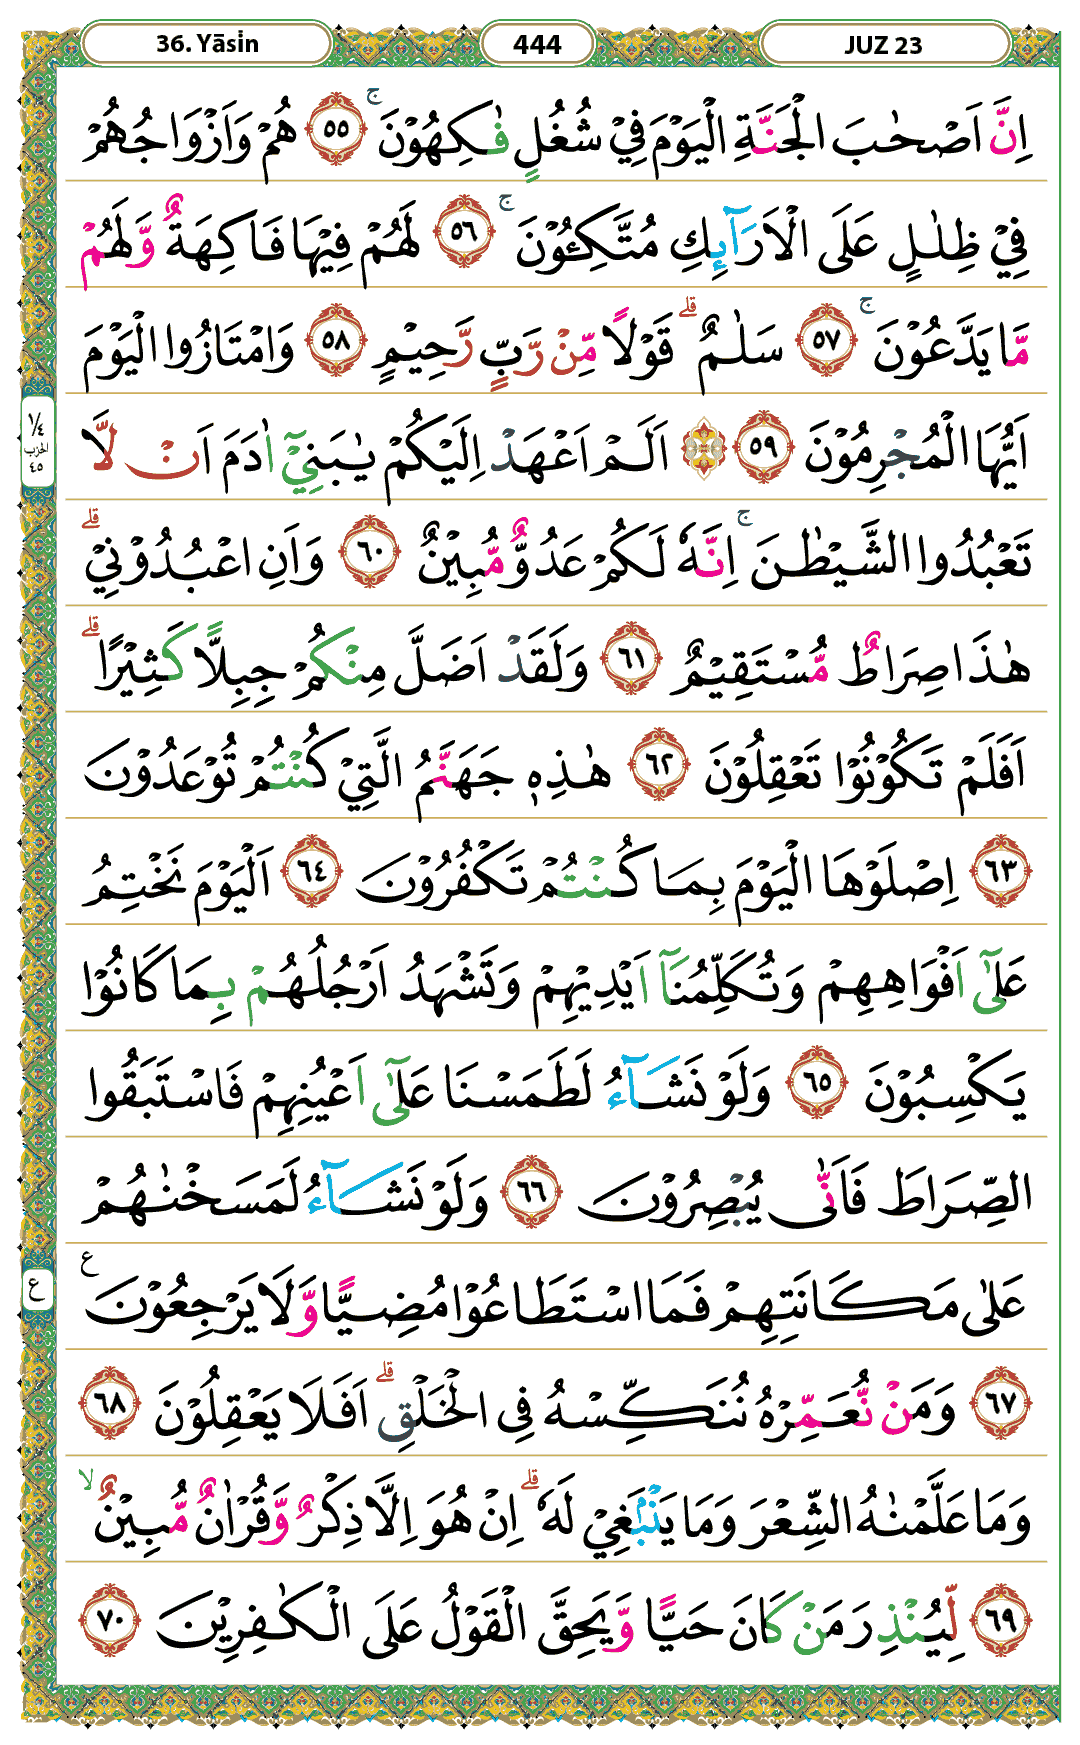 36. Yāsin
444
JUZ 23
اِنَّ اَصْحٰبَ الْجَنَّةِ الْيَوْمَ فِيْ شُغُلٍ فٰكِهُوْنَ ۚ ٥٥ هُمْ وَاَزْوَاجُهُمْ
فِيْ ظِلٰلٍ عَلَى الْاَرَاۤىِٕكِ مُتَّكِـُٔوْنَ ۚ ٥٦ لَهُمْ فِيْهَا فَاكِهَةٌ وَّلَهُمْ
مَّا يَدَّعُوْنَ ۚ ٥٧ سَلٰمٌ ۗ قَوْلًا مِّنْ رَّبٍّ رَّحِيْمٍ ٥٨ وَامْتَازُوا الْيَوْمَ
اَيُّهَا الْمُجْرِمُوْنَ ٥٩ ۞ اَلَمْ اَعْهَدْ اِلَيْكُمْ يٰبَنِيْٓ اٰدَمَ اَنْ لَّا
١/٤
الحزب
٤٥
تَعْبُدُوا الشَّيْطٰنَ ۚ اِنَّهٗ لَكُمْ عَدُوٌّ مُّبِيْنٌ ٦٠ وَاَنِ اعْبُدُوْنِيْ ۗ
هٰذَا صِرَاطٌ مُّسْتَقِيْمٌ ٦١ وَلَقَدْ اَضَلَّ مِنْكُمْ جِبِلًّا كَثِيْرًا ۗ
اَفَلَمْ تَكُوْنُوْا تَعْقِلُوْنَ ٦٢ هٰذِهٖ جَهَنَّمُ الَّتِيْ كُنْتُمْ تُوْعَدُوْنَ
٦٣ اِصْلَوْهَا الْيَوْمَ بِمَا كُنْتُمْ تَكْفُرُوْنَ ٦٤ اَلْيَوْمَ نَخْتِمُ
عَلٰٓى اَفْوَاهِهِمْ وَتُكَلِّمُنَآ اَيْدِيْهِمْ وَتَشْهَدُ اَرْجُلُهُمْ بِمَا كَانُوْا
يَكْسِبُوْنَ ٦٥ وَلَوْ نَشَاۤءُ لَطَمَسْنَا عَلٰٓى اَعْيُنِهِمْ فَاسْتَبَقُوا
الصِّرَاطَ فَاَنّٰى يُبْصِرُوْنَ ٦٦ وَلَوْ نَشَاۤءُ لَمَسَخْنٰهُمْ
عَلٰى مَكَانَتِهِمْ فَمَا اسْتَطَاعُوْا مُضِيًّا وَّلَا يَرْجِعُوْنَ ࣖ
ع
٦٧ وَمَنْ نُّعَمِّرْهُ نُنَكِّسْهُ فِى الْخَلْقِ ۗ اَفَلَا يَعْقِلُوْنَ ٦٨
وَمَا عَلَّمْنٰهُ الشِّعْرَ وَمَا يَنْۢبَغِيْ لَهٗ ۗ اِنْ هُوَ اِلَّا ذِكْرٌ وَّقُرْاٰنٌ مُّبِيْنٌ ۙ
٦٩ لِّيُنْذِرَ مَنْ كَانَ حَيًّا وَّيَحِقَّ الْقَوْلُ عَلَى الْكٰفِرِيْنَ ٧٠